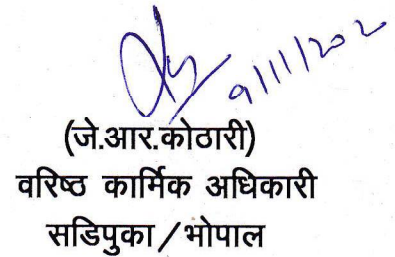 9/11/202
(जे.आर.कोठारी)
वरिष्ठ कार्मिक अधिकारी
सडिपुका/भोपाल